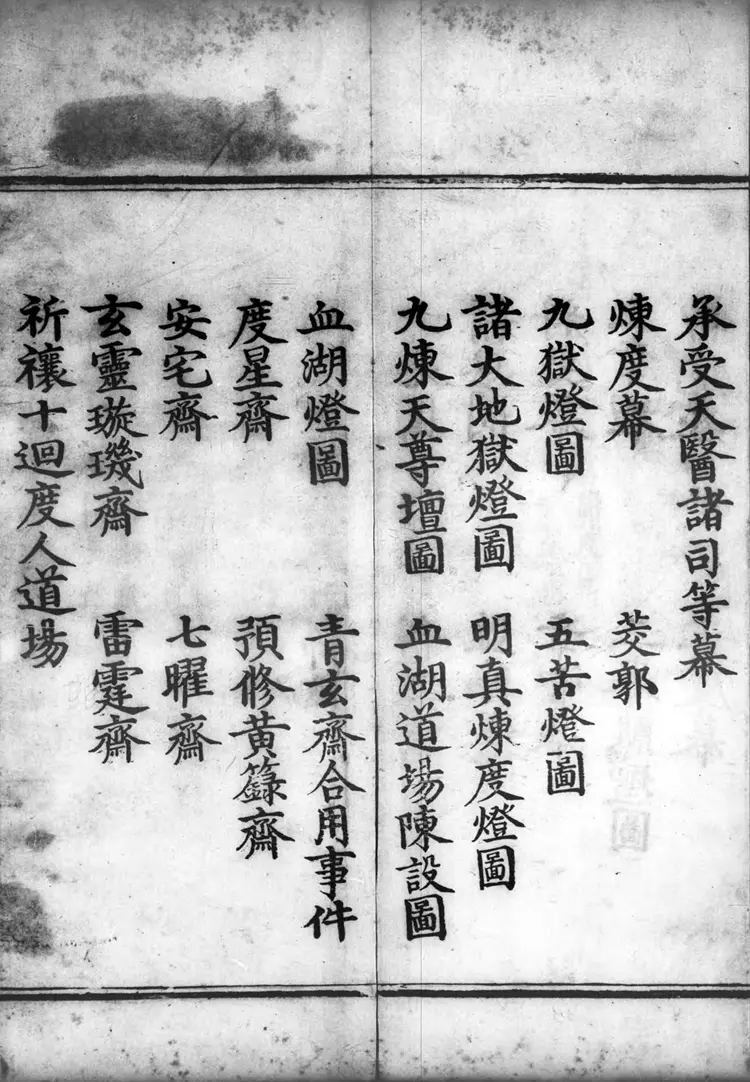 承受天醫諸司等幕
煉度幕　茭郭
九獄燈圖　五苦燈圖
諸大地獄燈圖　明真煉度燈圖
九煉天尊壇圖　血湖道場陳設圖
血湖燈圖　青玄齋合用事件
度星齋　預修黃籙齋
安宅齋　七曜齋
玄靈璇璣齋　雷霆齋
祈禳十迴度人道場